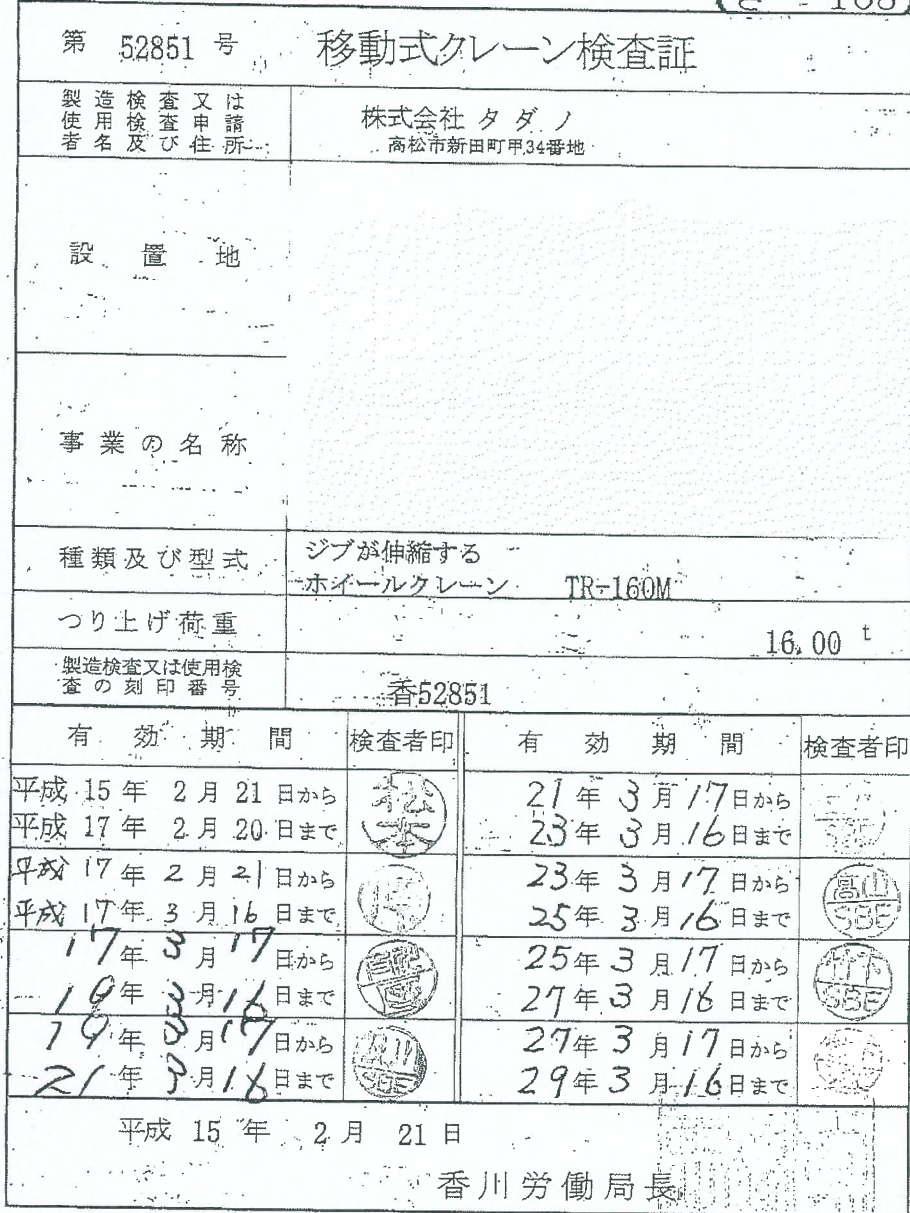 第 52851 号
移動式クレーン検査証
製造検査又は
使用検査申請
者名及び住所
株式会社 タダノ
高松市新田町甲34番地
設置地
事業の名称
種類及び型式
ジブが伸縮する
ホイールクレーン TR-160M
つり上げ荷重
16.00 t
製造検査又は使用検
査の刻印番号
香52851
有効期間 検査者印
平成 15 年 2 月 21 日から
平成 17 年 2 月 20 日まで
松本
平成 17 年 2 月 21 日から
平成 17 年 3 月 16 日まで
17 年 3 月 17 日から
19 年 3 月 16 日まで
19 年 3 月 17 日から
21 年 3 月 16 日まで
SBE
有効期間 検査者印
21 年 3 月 17 日から
23 年 3 月 16 日まで
SBE
23 年 3 月 17 日から
25 年 3 月 16 日まで
高山
SBE
25 年 3 月 17 日から
27 年 3 月 16 日まで
竹下
SBE
27 年 3 月 17 日から
29 年 3 月 16 日まで
平成 15 年 2 月 21 日
香川労働局長